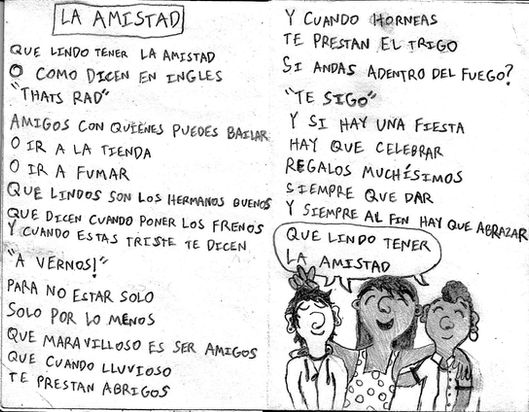 LA AMISTAD
QUE LINDO TENER LA AMISTAD
O COMO DICEN EN INGLES
"THATS RAD"
AMIGOS CON QUIENES PUEDES BAILAR
O IR A LA TIENDA
O IR A FUMAR
QUE LINDOS SON LOS HERMANOS BUENOS
QUE DICEN CUANDO PONER LOS FRENOS
Y CUANDO ESTAS TRISTE TE DICEN
"A VERNOS!"
PARA NO ESTAR SOLO
SOLO POR LO MENOS
QUE MARAVILLOSO ES SER AMIGOS
QUE CUANDO LLUVIOSO
TE PRESTAN ABRIGOS
Y CUANDO HORNEAS
TE PRESTAN EL TRIGO
SI ANDAS ADENTRO DEL FUEGO?
"TE SIGO"
Y SI HAY UNA FIESTA
HAY QUE CELEBRAR
REGALOS MUCHÍSIMOS
SIEMPRE QUE DAR
Y SIEMPRE AL FIN HAY QUE ABRAZAR
QUE LINDO TENER
LA AMISTAD